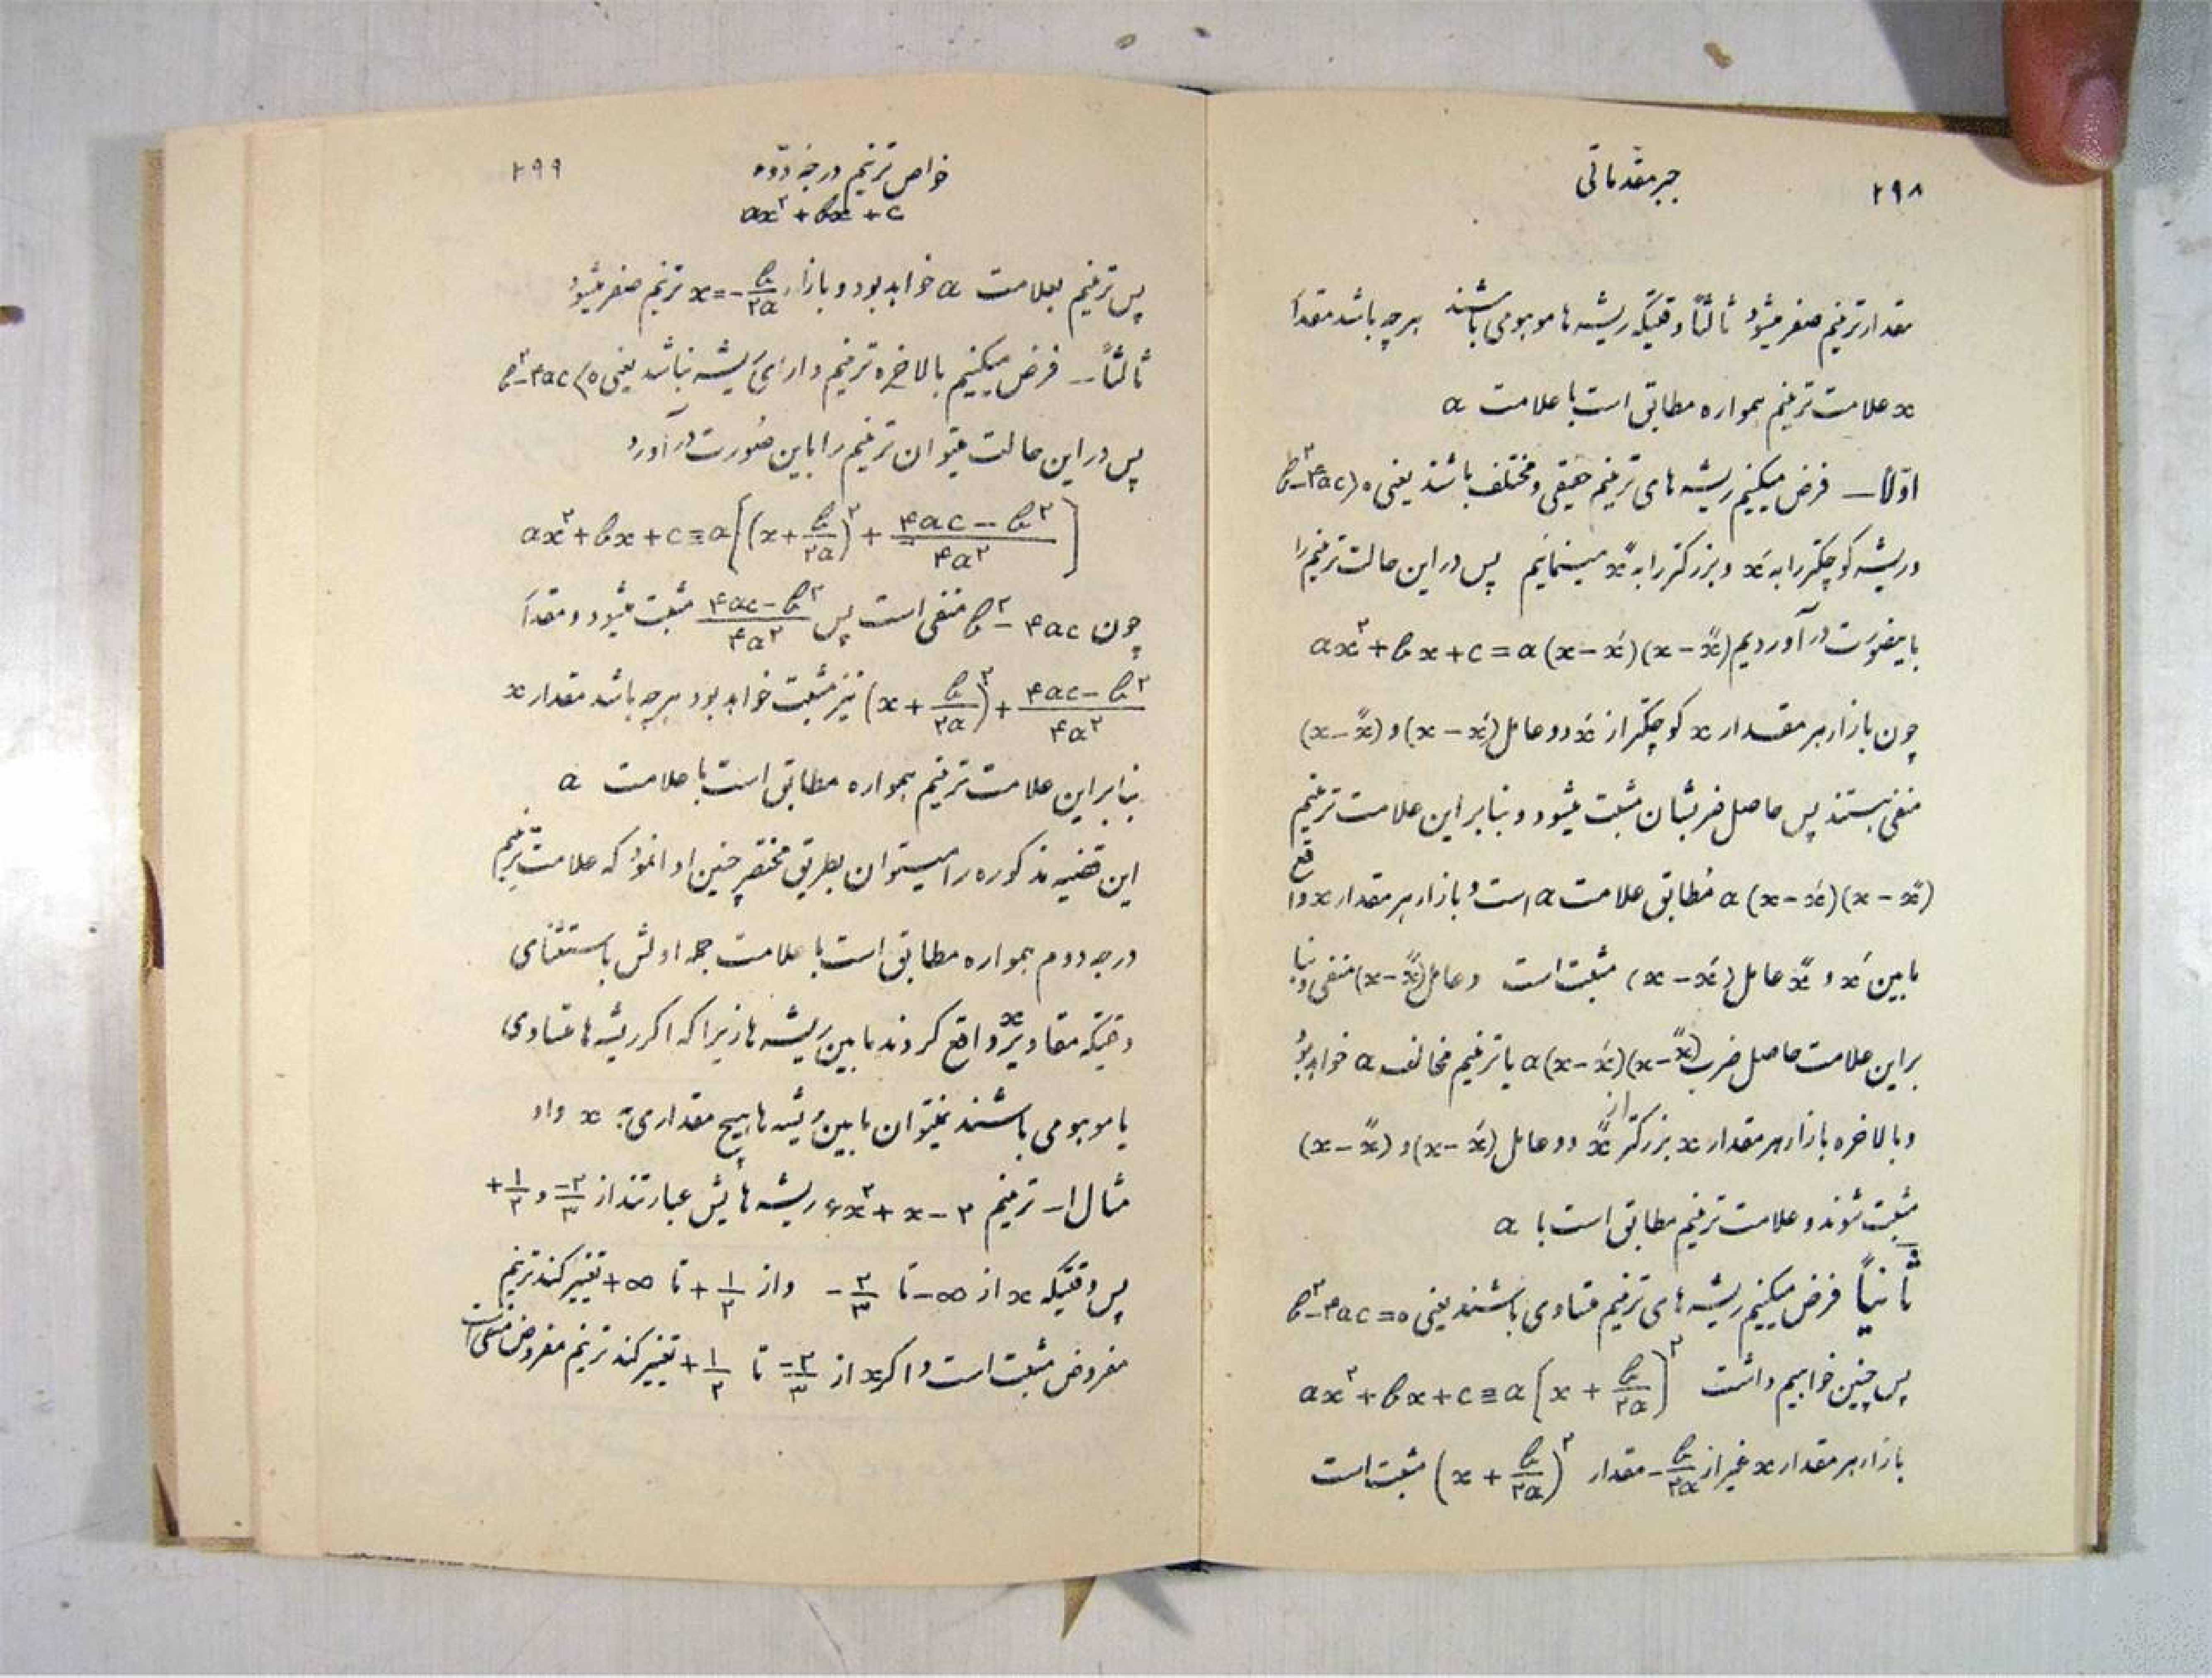 ۲۹۸
جبر مقدماتی
مقدار ترنیم صفر میشود ثالثاً وقتیکه ریشه ها موهومی باشند هر چه باشد مقدار
x علامت ترنیم همواره مطابق است با علامت a
اولاً — فرض میکنیم ریشه های ترنیم حقیقی و مختلف باشند یعنی b²-۴ac>۰
و ریشه کوچکتر را به x′ و بزرگتر را به x″ مینمائیم پس در این حالت ترنیم را
باینصورت در آوردیم ax²+bx+c=a(x-x′)(x-x″)
چون بازاء هر مقدار x کوچکتر از x′ دو عامل (x-x′) و (x-x″)
منفی هستند پس حاصل ضربشان مثبت میشود و بنابر این علامت ترنیم
a(x-x′)(x-x″) مطابق علامت a است و بازاء هر مقدار x واقع
مابین x′ و x″ عامل (x-x′) مثبت است و عامل (x-x″) منفی و بنا
براین علامت حاصل ضرب a(x-x′)(x-x″) یا ترنیم مخالف a خواهد بود
و بالاخره بازاء هر مقدار x بزرگتر از x″ دو عامل (x-x′) و (x-x″)
مثبت شوند و علامت ترنیم مطابق است با a
ثانیاً فرض میکنیم ریشه های ترنیم متساوی باشند یعنی b²-۴ac=۰
پس چنین خواهیم داشت ax²+bx+c≡a[x+b/۲a]²
بازاء هر مقدار x غیر از -b/۲a مقدار (x+b/۲a)² مثبت است
خواص ترنیم درجه دوم
۲۹۹
ax²+bx+c
پس ترنیم بعلامت a خواهد بود و بازاء x=-b/۲a ترنیم صفر میشود
ثالثاً — فرض میکنیم بالاخره ترنیم دارای ریشه نباشد یعنی b²-۴ac<۰
پس در این حالت میتوان ترنیم را باین صورت در آورد
ax²+bx+c≡a[(x+b/۲a)²+(۴ac-b²)/۴a²]
چون b²-۴ac منفی است پس (۴ac-b²)/۴a² مثبت میشود و مقدار
(x+b/۲a)²+(۴ac-b²)/۴a² نیز مثبت خواهد بود هر چه باشد مقدار x
بنابراین علامت ترنیم همواره مطابق است با علامت a
این قضیه مذکوره را میتوان بطریق مختصر چنین ادا نمود که علامت ترنیم
درجه دوم همواره مطابق است با علامت جمله اولش باستثنای
وقتیکه مقادیر x واقع گردند مابین ریشه ها زیرا که اگر ریشه ها متساوی
یا موهومی باشند نمیتوان مابین ریشه ها هیچ مقداری به x داد
مثال ۱— ترنیم ۶x²+x-۲ ریشه هایش عبارتند از -۲/۳ و +۱/۲
پس وقتیکه x از -∞ تا -۲/۳ و از +۱/۲ تا +∞ تغییر کند ترنیم
مفروض مثبت است و اگر x از -۲/۳ تا +۱/۲ تغییر کند ترنیم مفروض منفی است